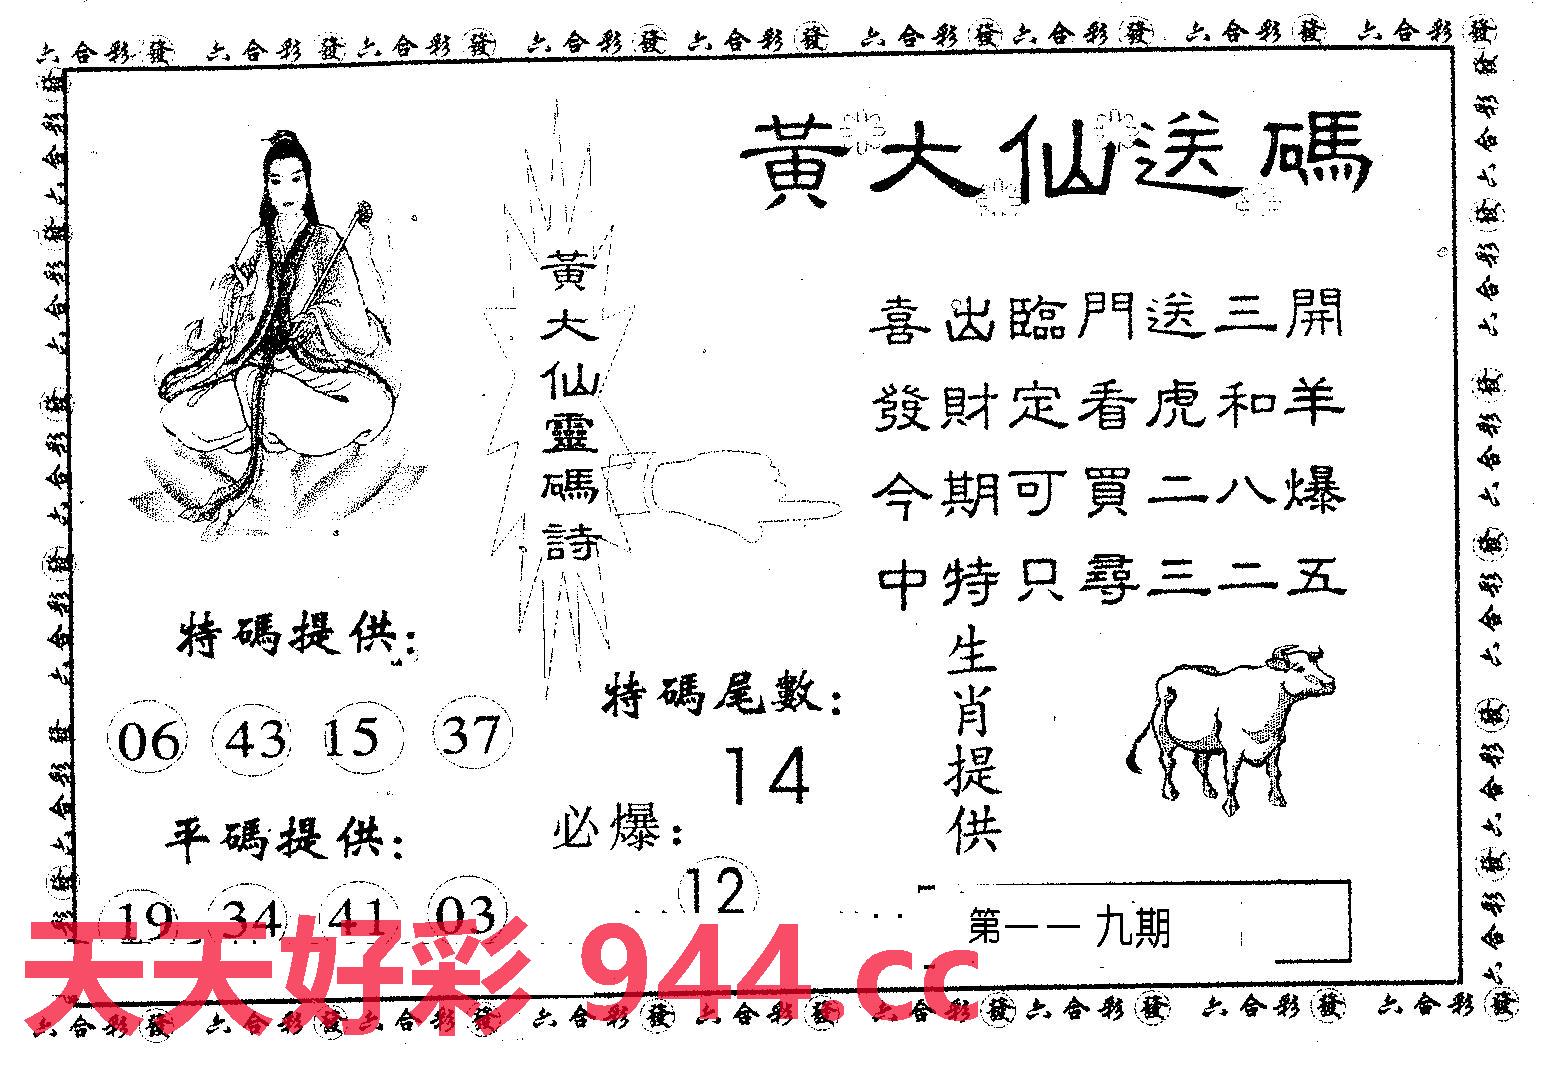 六合彩發 六合彩發 六合彩發 六合彩發 六合彩發 六合彩發 六合彩發 六合彩發 六合彩發
黃大仙送碼
黃大仙靈碼詩
喜出臨門送三開
發財定看虎和羊
今期可買二八爆
中特只尋三二五
特碼提供：
06 43 15 37
平碼提供：
19 34 41 03
特碼尾數：
14
必爆：
12
生肖提供
第一一九期
天天好彩 944.cc
六合彩發 六合彩發 六合彩發 六合彩發 六合彩發 六合彩發 六合彩發 六合彩發 六合彩發